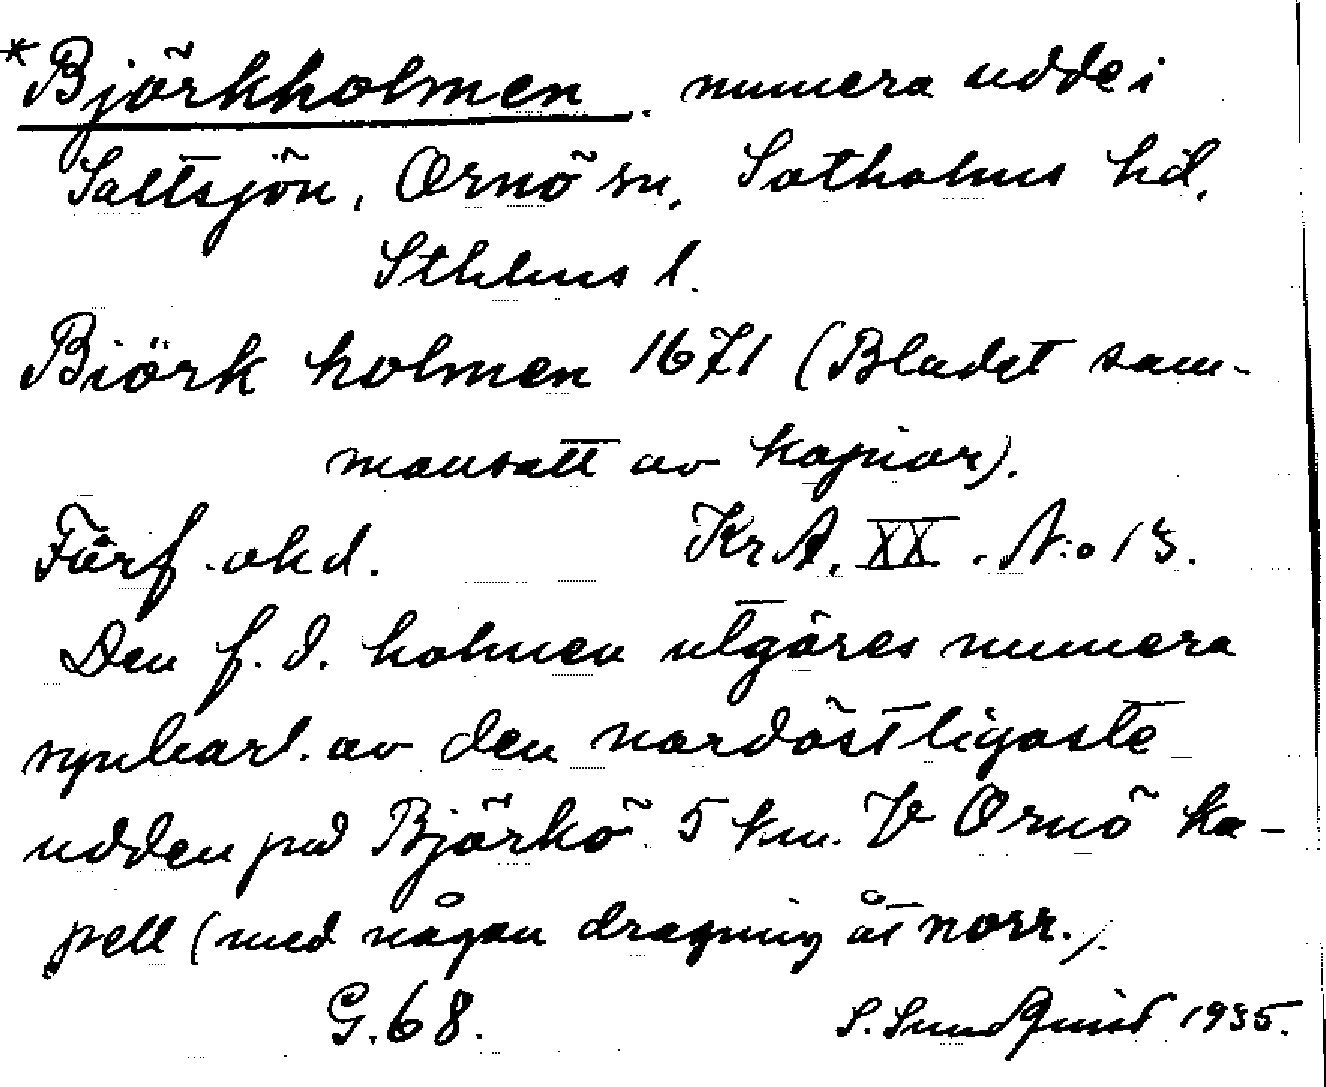 *Björkholmen. numera udde i
Saltsjön, Ornö sn, Sotholms hd,
Sthlms l.
Biörk holmen 1671 (Bladet sam-
mansatt av kopior).
Förf. okd. KrA, XX. N:o 13.
Den f.d. holmen utgöres numera
synbarl. av den nordöstligaste
udden på Björkö 5 km. V Ornö ka-
pell (med någon dragning åt norr.).
G.68. S. Sundquist 1935.